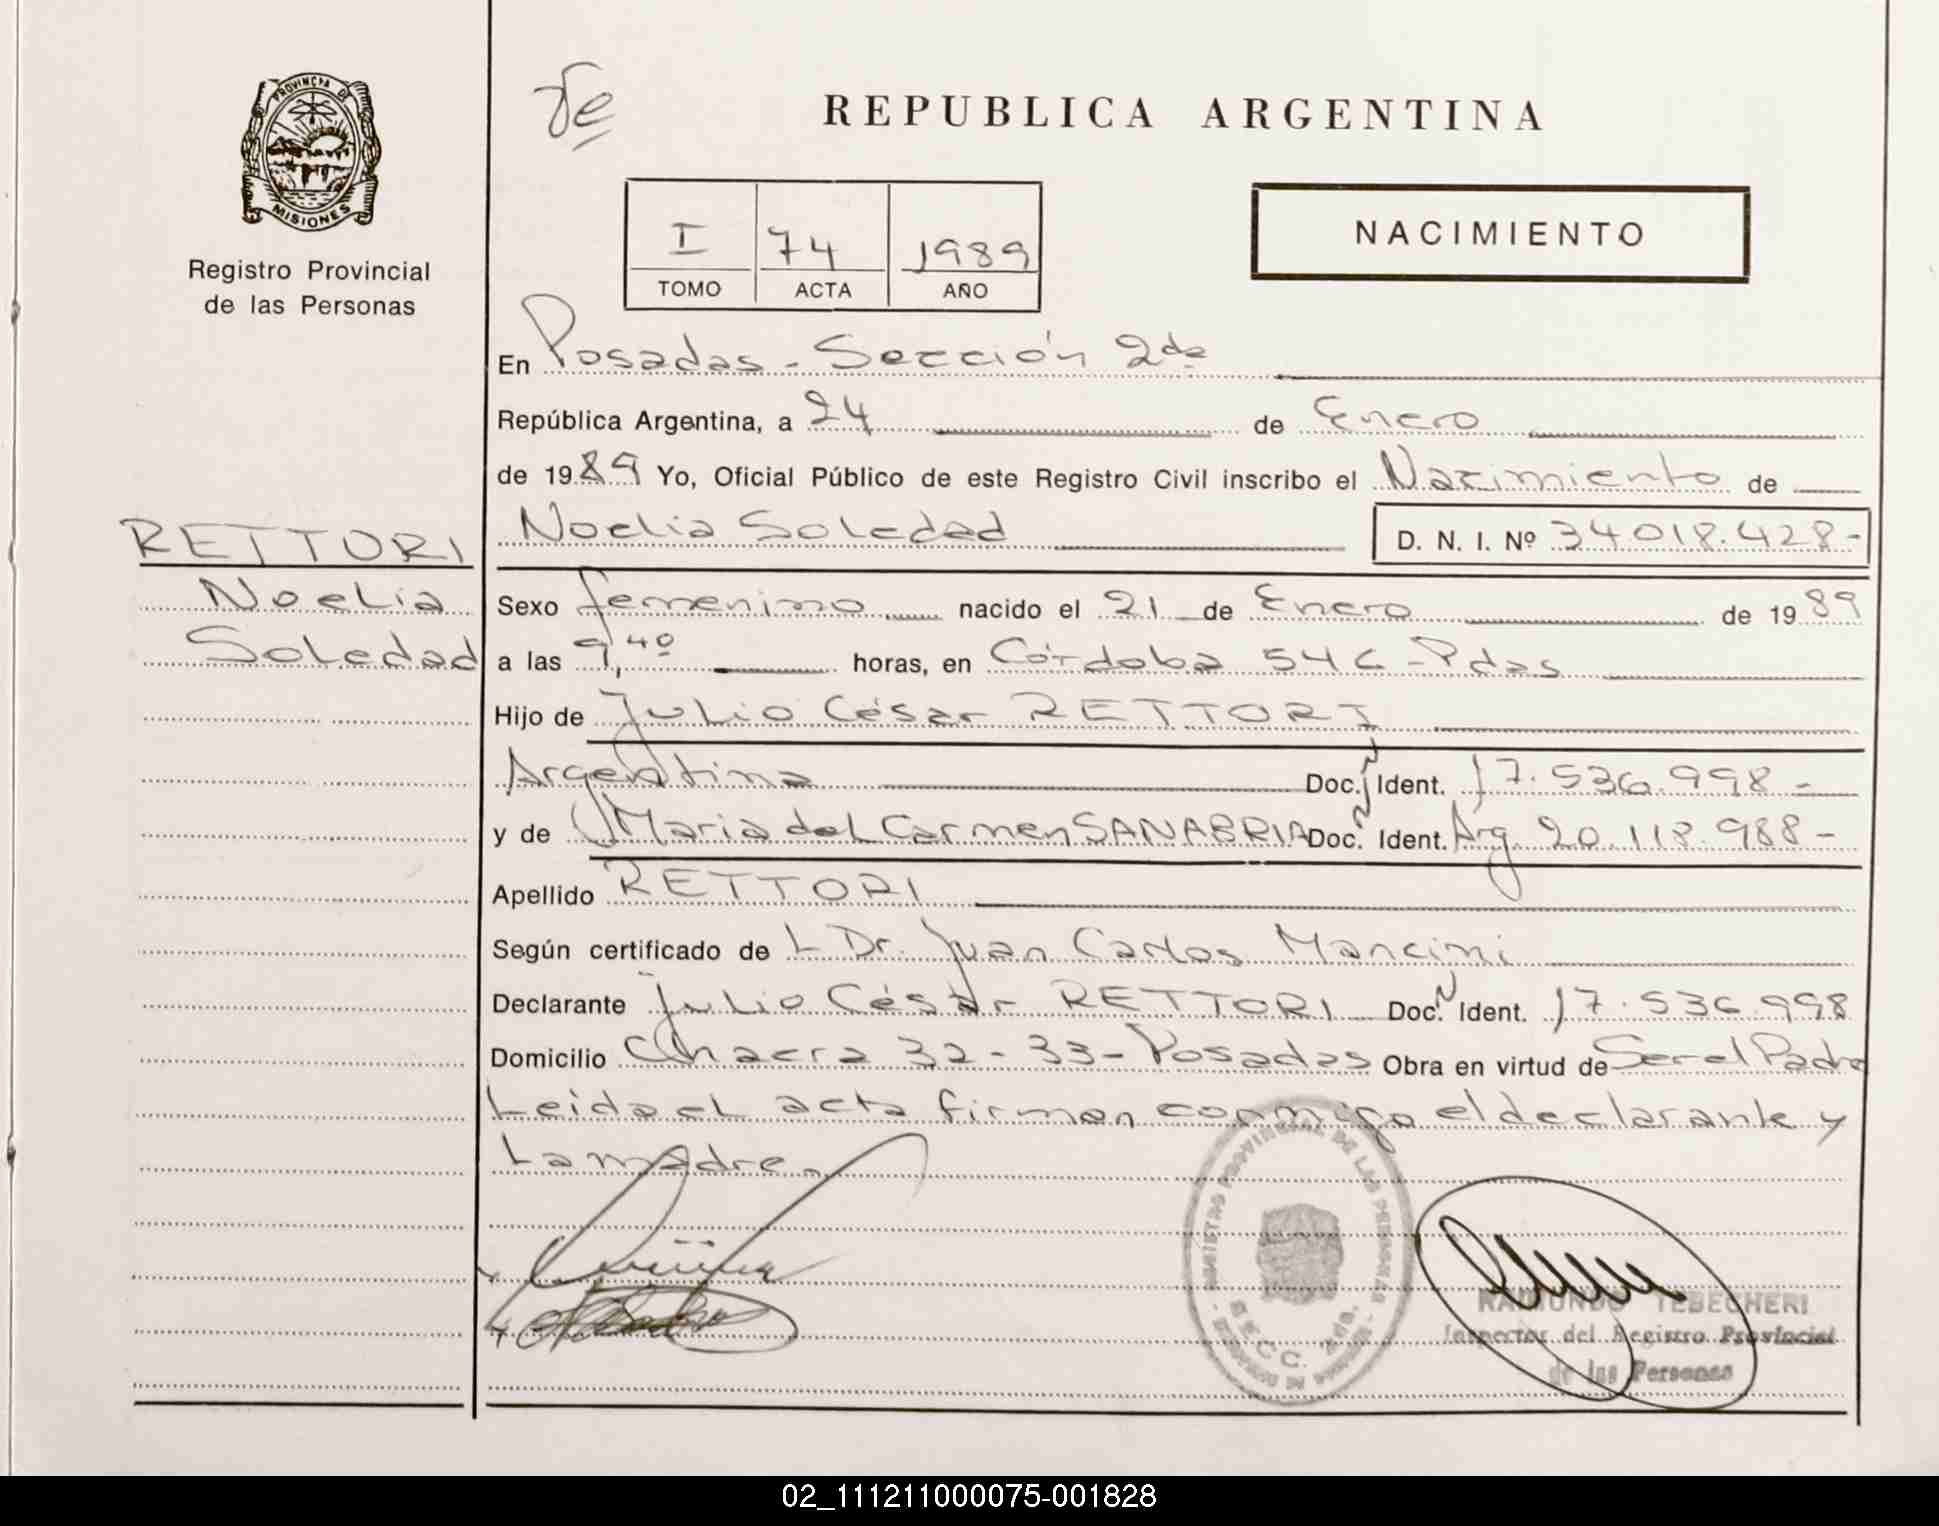 PROVINCIA DE
MISIONES
Registro Provincial
de las Personas
REPUBLICA ARGENTINA
I 74 1989
TOMO ACTA AÑO
NACIMIENTO
En Posadas - Sección 2da
República Argentina, a 24 de Enero
de 1989 Yo, Oficial Público de este Registro Civil inscribo el Nacimiento de
RETTORI
Noelia
Soledad
Noelia Soledad D. N. I. Nº 34018.428-
Sexo femenino nacido el 21 de Enero de 1989
a las 9,40 horas, en Córdoba 546 - Pdas
Hijo de Julio César RETTORI
Argentina Doc. Ident. 17.536.998-
y de María del Carmen SANABRIA Doc. Ident. Arg. 20.118.988-
Apellido RETTORI
Según certificado de L Dr. Juan Carlos Mancini
Declarante Julio César RETTORI Doc. Ident. 17.536.998
Domicilio Chacra 32-33-Posadas Obra en virtud de Ser el Padre
Leida el acta firman conmigo el declarante y
La madre.
REGISTRO PROVINCIAL DE LAS PERSONAS
SECC. 2da.
RAIMUNDO TEBECHERI
Inspector del Registro Provincial
de las Personas
02_111211000075-001828